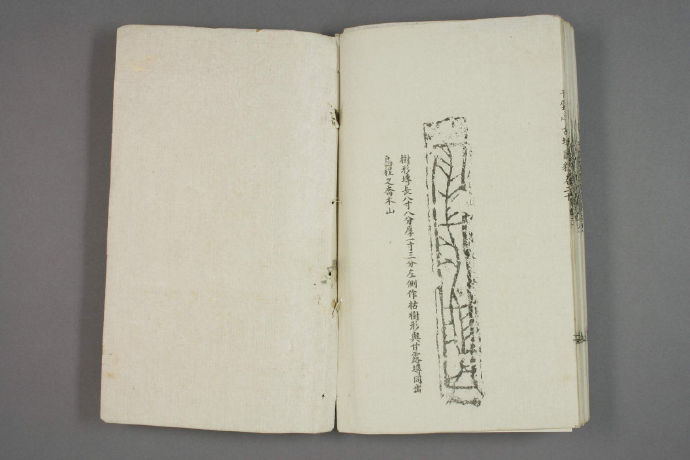 樹形塼長八寸八分厚一寸三分左側作枯樹形與甘露塼同出
烏程之喬木山